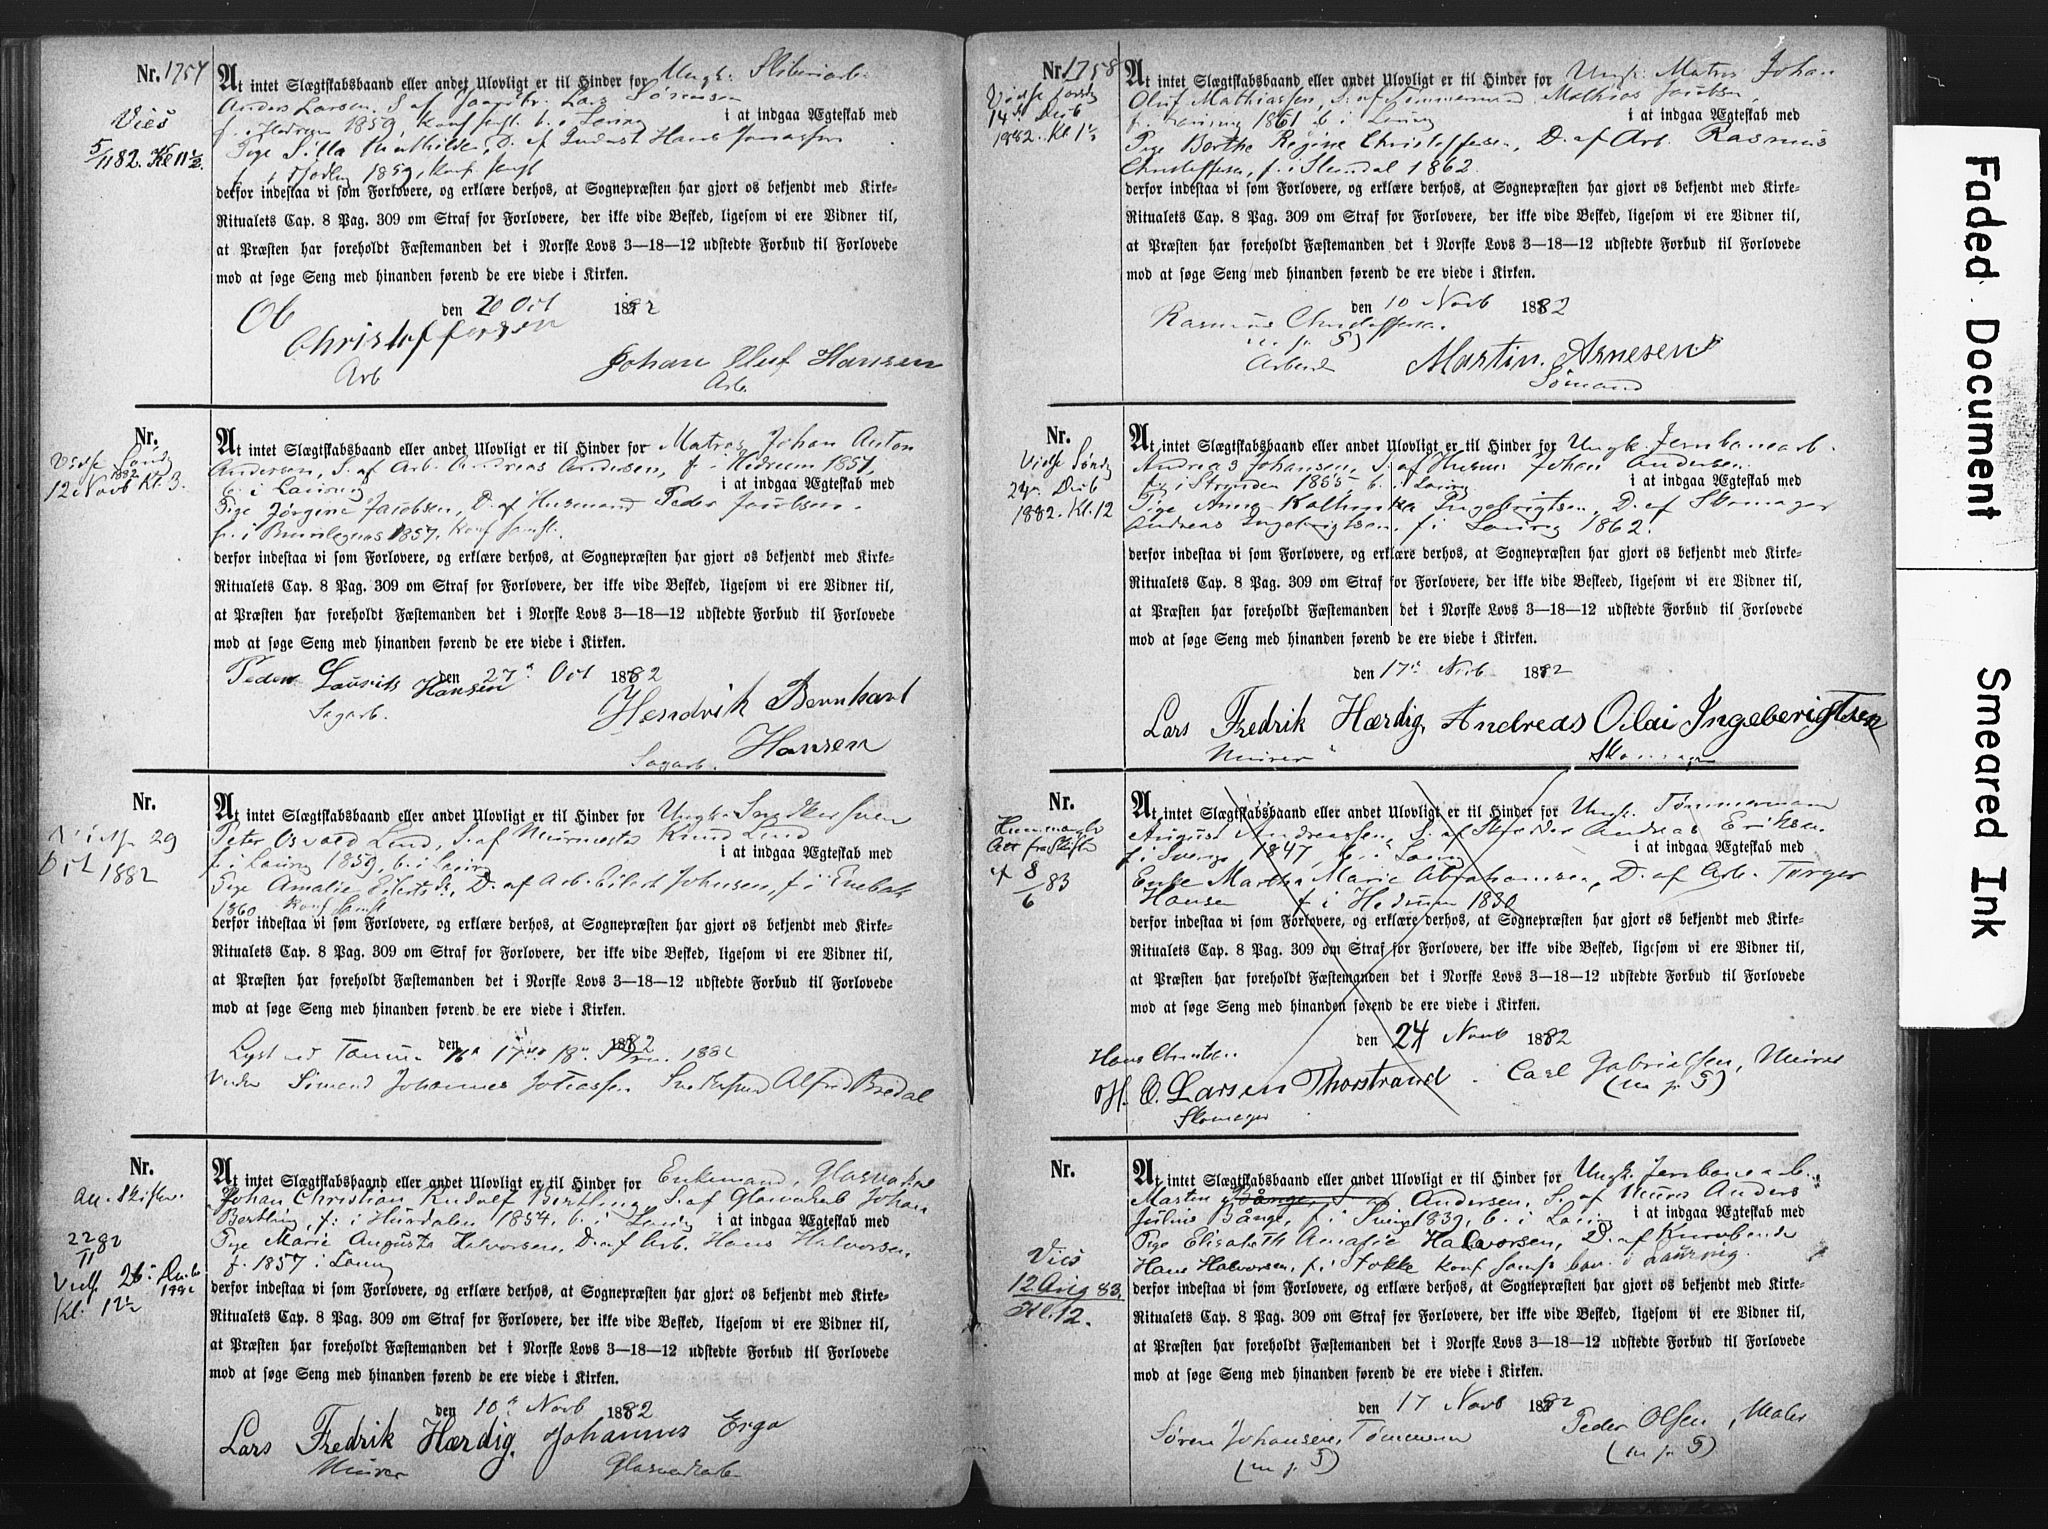 Nr. 1757
Viet
5/11 82. Kl 11½
At intet Slægtskabsbaand eller andet Ulovligt er til Hinder for Ungk.
Anders Larsen, S. af Lars Sørensen
i at indgaa Ægteskab med
f. i Hedrum 1859, Konf. samst. b. i Laurvig
Pige Silla Mathilde, D. af Hans
1859, Konf. samst
derfor indestaa vi som Forlovere, og erklære derhos, at Sognepræsten har gjort os bekjendt med Kirke-
Ritualets Cap. 8 Pag. 309 om Straf for Forlovere, der ikke vide Besked, ligesom vi ere Vidner til,
at Præsten har foreholdt Fæstemanden det i Norske Lovs 3—18—12 udstedte Forbud til Forlovede
mod at søge Seng med hinanden førend de ere viede i Kirken.
den 20 Oct 1882
Ob
Christoffersen
Arb
Johan Oluf Hansen
Arb.
Nr.
Vielse Sønd
12 Novb 1882 Kl. 3.
At intet Slægtskabsbaand eller andet Ulovligt er til Hinder for Matros Johan Anton
Andersen, S. af Arb. Andreas Andersen, f. i Hedrum 1857,
b. i Laurvig
i at indgaa Ægteskab med
Pige Jørgine Jacobsen, D. af Husmand Peder Jacobsen.
f. i Brunlagnæs 1857, Konf samst.
derfor indestaa vi som Forlovere, og erklære derhos, at Sognepræsten har gjort os bekjendt med Kirke-
Ritualets Cap. 8 Pag. 309 om Straf for Forlovere, der ikke vide Besked, ligesom vi ere Vidner til,
at Præsten har foreholdt Fæstemanden det i Norske Lovs 3—18—12 udstedte Forbud til Forlovede
mod at søge Seng med hinanden førend de ere viede i Kirken.
den 27 Oct 1882
Peder Laurits Hansen
Sagarb.
Hendrik Bernhart
Hansen
Sagarb.
Nr.
Vielse 29
Oct 1882
At intet Slægtskabsbaand eller andet Ulovligt er til Hinder for Ungk. Snedkersvend
Peter Osvald Lind, S. af Muurmester Knud Lind
f. i Laurvig 1859, b. i Laurvig
i at indgaa Ægteskab med
Pige Amalie Eilertsd., D. af Arb. Eilert Johnsen, f. i Enebak
1860 Konf samst
derfor indestaa vi som Forlovere, og erklære derhos, at Sognepræsten har gjort os bekjendt med Kirke-
Ritualets Cap. 8 Pag. 309 om Straf for Forlovere, der ikke vide Besked, ligesom vi ere Vidner til,
at Præsten har foreholdt Fæstemanden det i Norske Lovs 3—18—12 udstedte Forbud til Forlovede
mod at søge Seng med hinanden førend de ere viede i Kirken.
den 1882
Lyst ved 16 17 18 1882
Vidner Sømand Johannes Alfred Bredal
Nr.
Att. Skiften.
22/11 82
Viels. 26 Decb 1882
Kl. 12½
At intet Slægtskabsbaand eller andet Ulovligt er til Hinder for Enkemand, Glasværksarb
Johan Christian Rudolf Bertling, S. af Glasværksarb Johan
Bertling, f. i Hurdalen 1854. b. i Laurvig
i at indgaa Ægteskab med
Pige Marie Augusta Halvorsen, D. af Arb. Hans Halvorsen,
f. 1857 i Laurvig
derfor indestaa vi som Forlovere, og erklære derhos, at Sognepræsten har gjort os bekjendt med Kirke-
Ritualets Cap. 8 Pag. 309 om Straf for Forlovere, der ikke vide Besked, ligesom vi ere Vidner til,
at Præsten har foreholdt Fæstemanden det i Norske Lovs 3—18—12 udstedte Forbud til Forlovede
mod at søge Seng med hinanden førend de ere viede i Kirken.
den 10 Novb 1882
Lars Fredrik Hærdig, Johannes Erga
Murer
Glasværksarb
Nr. 1758
14 Decb
1882. Kl. 1½
At intet Slægtskabsbaand eller andet Ulovligt er til Hinder for Ungk. Matros Johan
Oluf Mathiassen, S. af Tømmermand Mathias Jacobsen,
f. i Laurvig 1861 b. i Laurvig
i at indgaa Ægteskab med
Pige Berthe Regine Christoffersen, D. af Arb. Rasmus
Christoffersen, f. i Slemdal 1862.
derfor indestaa vi som Forlovere, og erklære derhos, at Sognepræsten har gjort os bekjendt med Kirke-
Ritualets Cap. 8 Pag. 309 om Straf for Forlovere, der ikke vide Besked, ligesom vi ere Vidner til,
at Præsten har foreholdt Fæstemanden det i Norske Lovs 3—18—12 udstedte Forbud til Forlovede
mod at søge Seng med hinanden førend de ere viede i Kirken.
den 10 Novb 1882
Rasmus Christoffersen.
m. p. P)
Arbeid
Martin Arnesen
Sømand
Nr.
Vielse Sønd
24 Decb
1882. Kl. 12
At intet Slægtskabsbaand eller andet Ulovligt er til Hinder for Ungk. Jernbanearb.
Andreas Johansen, S. af Husm Johan Andersen
f. i Strinden 1855, b. i Laurvig
i at indgaa Ægteskab med
Pige Anna Kathinka Ingebrigtsen, D. af Skomager
Andreas Ingebrigtsen f. i Laurvig 1862.
derfor indestaa vi som Forlovere, og erklære derhos, at Sognepræsten har gjort os bekjendt med Kirke-
Ritualets Cap. 8 Pag. 309 om Straf for Forlovere, der ikke vide Beskeed, ligesom vi ere Vidner til,
at Præsten har foreholdt Fæstemanden det i Norske Lovs 3—18—12 udstedte Forbud til Forlovede
mod at søge Seng med hinanden førend de ere viede i Kirken.
den 17 Novb 1882
Lars Fredrik Hærdig, Andreas Olai Ingeberigtsen
Murer
Skomager
Nr.
fra Skifte
af 8/6 83
At intet Slægtskabsbaand eller andet Ulovligt er til Hinder for Ungk. Tømmermand
August Andreassen, S. af Andreas Eriksen
f. i Sverge 1847, b. i Laurvig
i at indgaa Ægteskab med
Enke Martha Marie Abrahamsen, D. af Arb. Torger
Hansen f. i Hedrum 1830
derfor indestaa vi som Forlovere, og erklære derhos, at Sognepræsten har gjort os bekjendt med Kirke-
Ritualets Cap. 8 Pag. 309 om Straf for Forlovere, der ikke vide Besked, ligesom vi ere Vidner til,
at Præsten har foreholdt Fæstemanden det i Norske Lovs 3—18—12 udstedte Forbud til Forlovede
mod at søge Seng med hinanden førend de ere viede i Kirken.
den 24 Novb 1882
Hans Christian
H. O. Larsen Thorstrand. Carl Gabrielsen, Murer
(m p. P)
Skomager
Nr.
Viet
12 Aug 83.
Kl. 12.
At intet Slægtskabsbaand eller andet Ulovligt er til Hinder for Ungk. Jernbanearb.
Martin Bånge, S. af Andersen, S. af Murer Anders
Julius Bånge, f. i Sverige 1839, b. i Laurvig
i at indgaa Ægteskab med
Pige Elisabeth Amalie Halvorsen, D. af
Hans Halvorsen, f. i Stokke konf samst boe. i Laurvig.
derfor indestaa vi som Forlovere, og erklære derhos, at Sognepræsten har gjort os bekjendt med Kirke-
Ritualets Cap. 8 Pag. 309 om Straf for Forlovere, der ikke vide Besked, ligesom vi ere Vidner til,
at Præsten har foreholdt Fæstemanden det i Norske Lovs 3—18—12 udstedte Forbud til Forlovede
mod at søge Seng med hinanden førend de ere viede i Kirken.
den 17 Novb 1882
Søren Johansen, Tømmerm
(m p. P)
Peder Olsen, Maler
(m p. P)
Faded Document
Smeared Ink